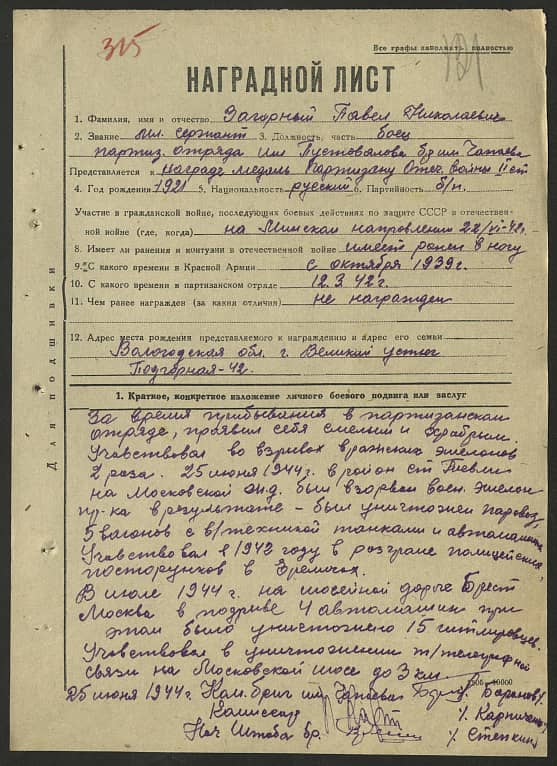 315
Все графы заполнять полностью
НАГРАДНОЙ ЛИСТ
1. Фамилия, имя и отчество Загорный Павел Николаевич
2. Звание мл. сержант 3. Должность, часть боец
партиз. отряда им Пустовалова бр им Чапаева
Представляется к награде медаль Партизану Отеч. войны II ст
4. Год рождения 1921 5. Национальность русский 6. Партийность б/п.
Участие в гражданской войне, последующих боевых действиях по защите СССР в отечествен-
ной войне (где, когда) на Минском направлении 22/VI-42г.
8. Имеет ли ранения и контузии в отечественной войне имеет ранен в ногу
9. С какого времени в Красной Армии с октября 1939г.
10. С какого времени в партизанском отряде 12.3.42г.
11. Чем ранее награжден (за какия отличия) не награжден
12. Адрес места рождения представляемого к награждению и адрес его семьи
Вологодская обл. г. Великий Устюг
Подгорная-42.
Для подшивки
1. Краткое, конкретное изложение личного боевого подвига или заслуг
За время прибывания в партизанском
отряде, проявил себя смелым и храбрым.
Учавствовал во взривах вражеских эшелонов
2 раза. 25 июня 1944г. в район ст Тевли
на Московской ж.д. был взорван воен. эшелон
пр-ка в результате - был уничтожен паровоз,
5 вагонов с в/техникой танками и автомашинами
Учавствовал в 1942 году в разгроме полицейских
постарунков в Еремичах.
В июле 1944г. на шосейной дороге Брест
Москва в подриве 4 автомашин при
этом было уничтожено 15 гитлеровцев.
Учавствовал в уничтожении т/телеграфной
связи на Московской шосе до 3 км.
25 июня 1944г. Ком. бриг им Чапаева Баранов
Комиссар
Нач Штаба бр. Степкин